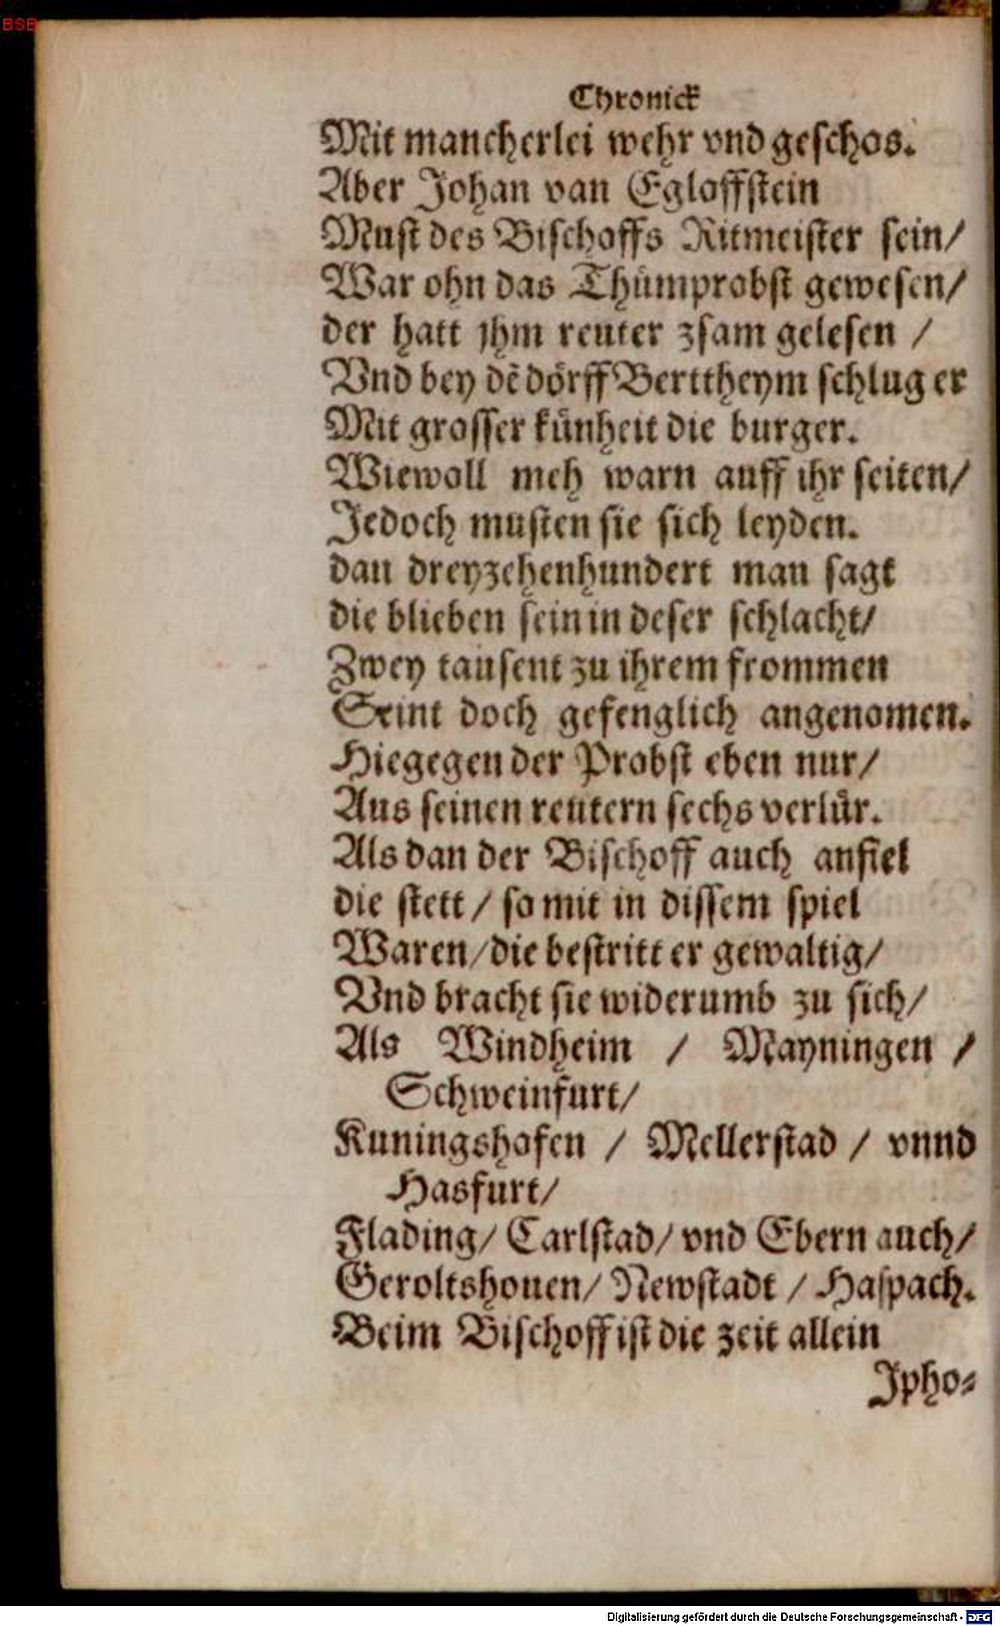 BSB
Chronick
Mit mancherlei wehr vnd geschos.
Aber Johan van Egloffstein
Must des Bischoffs Ritmeister sein/
War ohn das Thumprobst gewesen/
der hatt jhm reuter zsam gelesen /
Vnd bey dẽ dörff Berttheym schlug er
Mit grosser künheit die burger.
Wiewoll meh warn auff ihr seiten/
Jedoch musten sie sich leyden.
dan dreyzehenhundert man sagt
die blieben sein in deser schlacht/
Zwey tausent zu ihrem frommen
Seint doch gefenglich angenomen.
Hiegegen der Probst eben nur/
Aus seinen reutern sechs verlür.
Als dan der Bischoff auch anfiel
die stett / so mit in dissem spiel
Waren/die bestritt er gewaltig/
Vnd bracht sie widerumb zu sich/
Als Windheim / Mayningen /
Schweinfurt/
Kuningshofen / Mellerstad / vnnd
Hasfurt/
Flading/ Carlstad/ vnd Ebern auch/
Geroltshouen/ Newstadt / Haspach.
Beim Bischoff ist die zeit allein
Jpho⸗
Digitalisierung gefördert durch die Deutsche Forschungsgemeinschaft - DFG